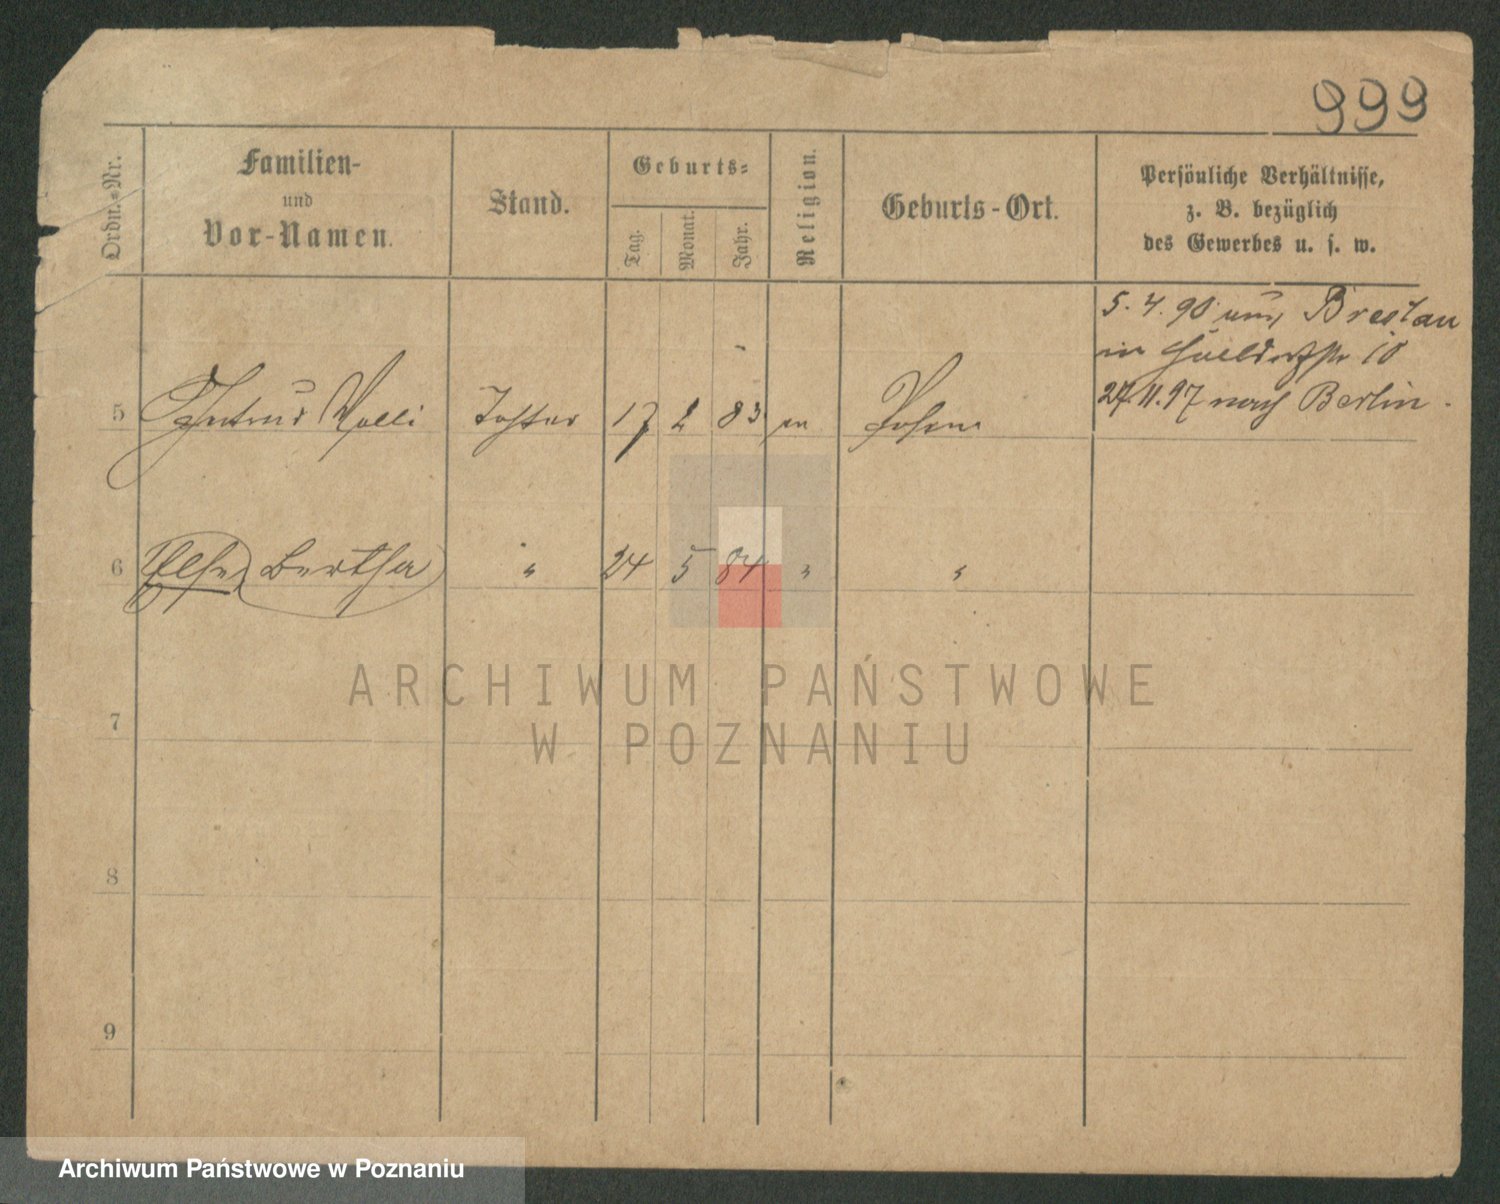 999
Ordn.-Nr.
Familien-
und
Vor-Namen.
Stand.
Geburts-
Tag.
Monat.
Jahr.
Religion.
Geburts-Ort.
Persönliche Verhältnisse,
z. B. bezüglich
des Gewerbes u. s. w.
5. 4. 90 Breslau
in 10
27.11.97 nach Berlin.
5 Gertrud Tochter 17 2 83 Posen
6 Else Bertha " 24 5 84 " "
7
8
9
ARCHIWUM PAŃSTWOWE
W POZNANIU
Archiwum Państwowe w Poznaniu